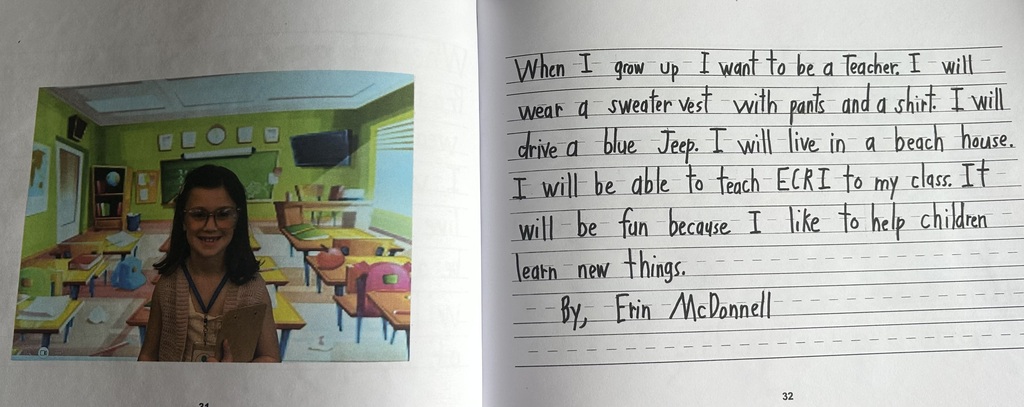 When I grow up I want to be a Teacher. I will
wear a sweater vest with pants and a shirt. I will
drive a blue Jeep. I will live in a beach house.
I will be able to teach ECRI to my class. It
will be fun because I like to help children
learn new things.
By, Erin McDonnell
31
32